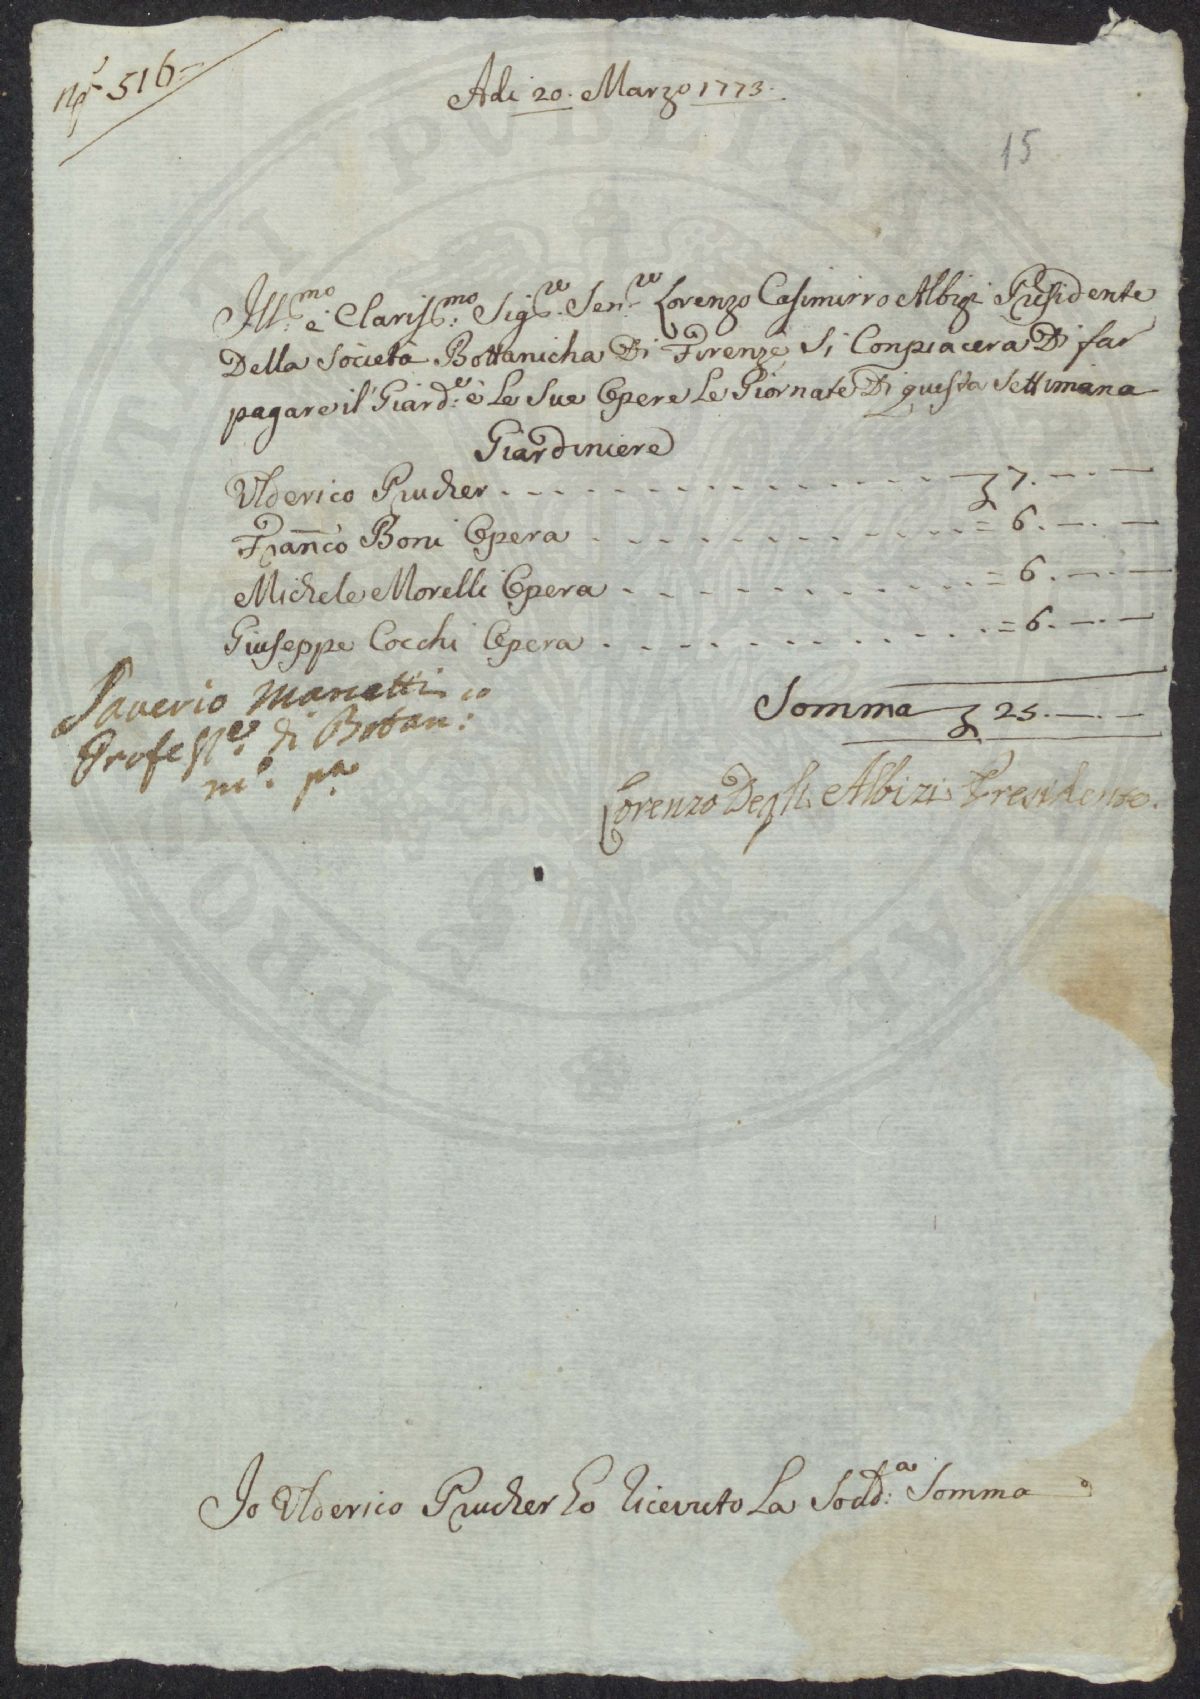 N° 516
Adi 20. Marzo 1773.
15
Ill:mo e Clariss:mo Sig:re Sen:re Lorenzo Casimirro Albizi Presidente
Della Società Bottanicha Di Firenze Si Conpiacera Di far
pagare il Giard:e e Le Sue Opere Le Giornate Di questa Settimana
Giardiniere
Ulderico Prucher . - - - - - - - - - - - - - 7. — . —
Franco Boni Opera . - - - - - - - - - - = 6. — . —
Michele Morelli Opera . - - - - - - - - - - = 6. — . —
Giuseppe Cocchi Opera . - - - - - - - - - - = 6. — . —
Somma 25. — . —
Saverio Manetti
Profess:e di Botan:
m:o p:a
Lorenzo Degli Albizi Presidente.
Io Ulderico Prucher ho ricevuto La Sodd:a Somma
PRO REI PVBLICAE